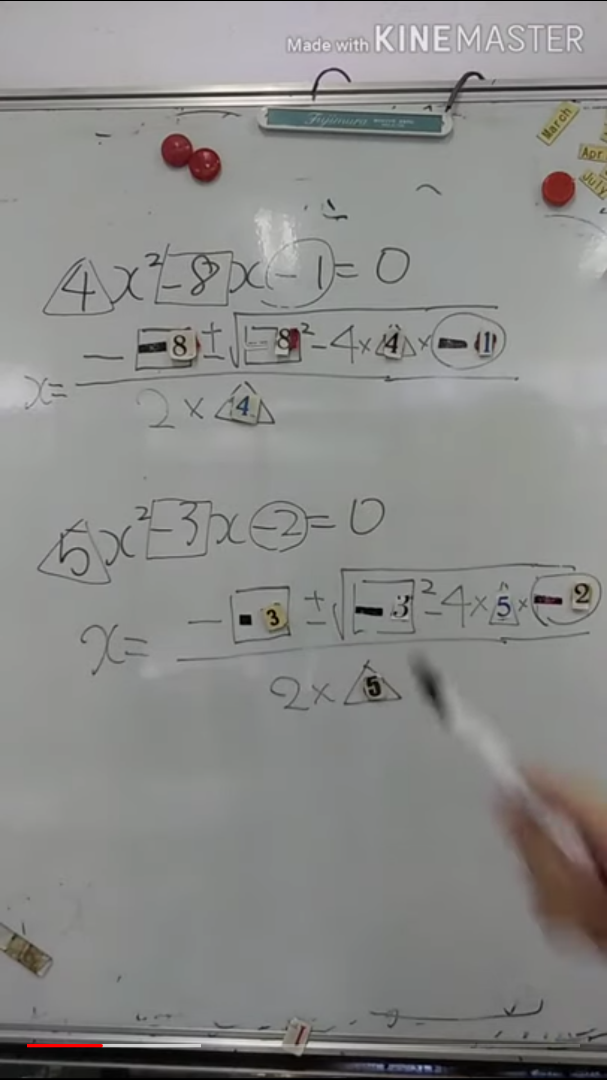 Made with KINEMASTER
Fujimura
March
Apr
July
4x²-8x-1=0
x= - -8 ± √-8²-4×4×-1
2×4
5x²-3x-2=0
x= - -3 ± √-3²-4×5×-2
2×5
1